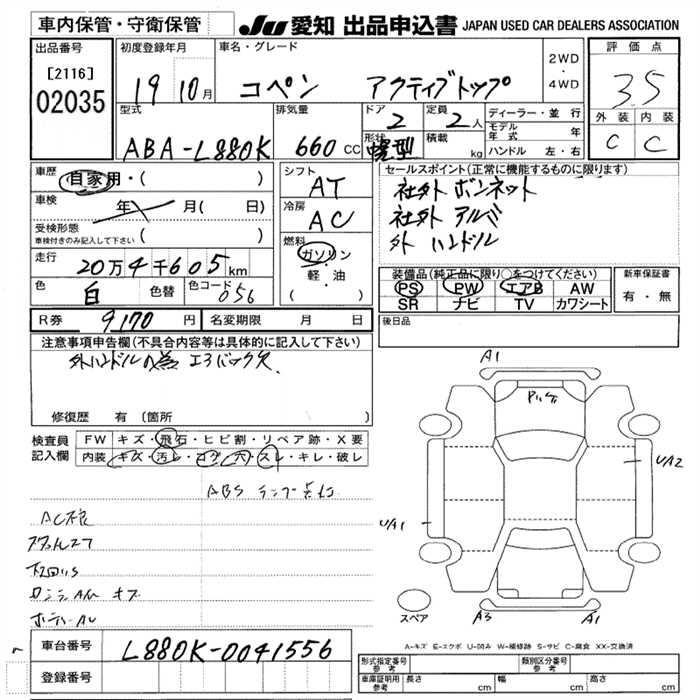 車内保管・守衛保管
JU 愛知 出品申込書 JAPAN USED CAR DEALERS ASSOCIATION
出品番号 [2116] 02035
初度登録年月 19 10月
車名・グレード コペン アクティブトップ
2WD・4WD
評価点 3.5
外装 C 内装 C
型式 ABA-L880K
排気量 660 CC
ドア 2 形状
定員 2人 積載 kg
ディーラー・並行
モデル年式 年
ハンドル 左・右
車歴 自家用・( )
車検 年 月( 日)
受検形態 車検付きのみ記入して下さい ( )
走行 20万4千605km
色 白 色替 色コード 056
シフト AT
冷房 AC
燃料 ガソリン 軽・油 ( )
セールスポイント(正常に機能するものに限ります)
社外 ボンネット
社外 アルミ
外 ハンドル
装備品(純正品に限り○をつけてください)
PS PW エアB AW
SR ナビ TV カワシート
新車保証書 有・無
R券 9170円 名変期限 月 日
後日品
注意事項申告欄(不具合内容等は具体的に記入して下さい)
外ハンドルの為 エアバックス
修復歴 有 (箇所 )
検査員記入欄
FW キズ・飛石・ヒビ割・リペア跡・X要
内装 キズ・汚レ・コゲ・穴・スレ・キレ・破レ
ABS ランプ点灯
AC不良
A1
U/A2
U/A1
スペア
A3
A1
A-キズ E-エクボ U-凹み W-補修跡 S-サビ C-腐食 XX-交換済
車台番号 L880K-0041556
登録番号
形式指定番号 参考
類別区分番号 参考
車庫証明用 参考 長さ cm 幅 cm 高さ cm